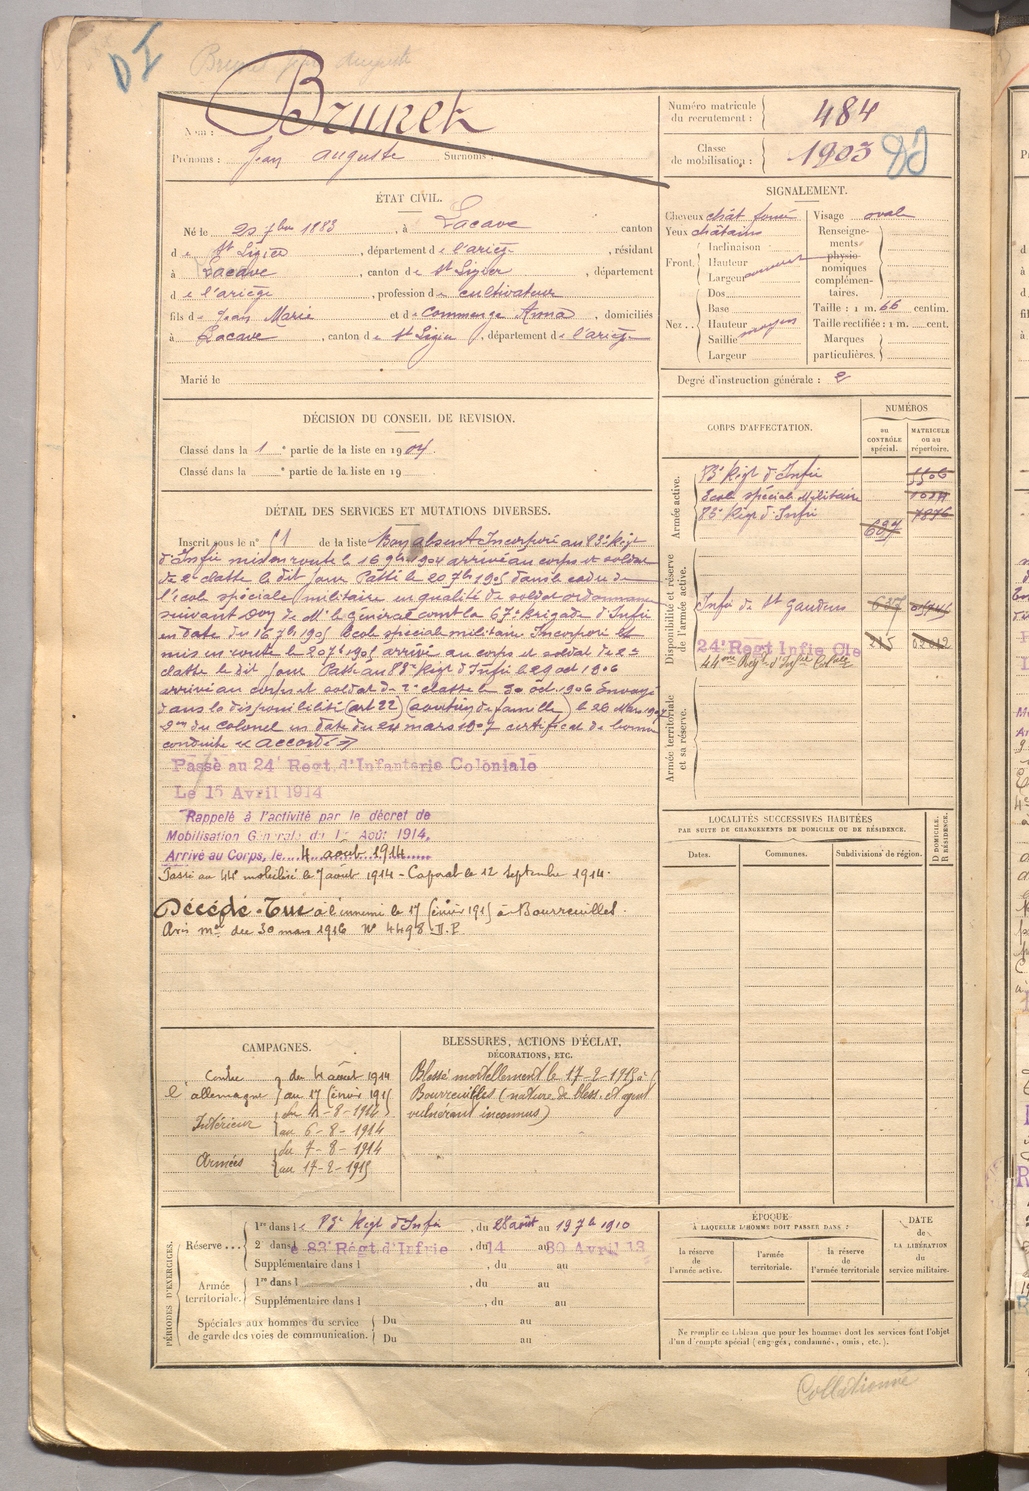 DI
Brunet Jean Auguste
Nom : Brunet
Prénoms : Jean auguste Surnoms :
Numéro matricule du recrutement : 484
Classe de mobilisation : 1903
ÉTAT CIVIL.
Né le 23 7bre 1883, à Lacave canton
de St Lizier, département de l'ariège, résidant
à Lacave, canton de St Lizier, département
de l'ariège, profession de cultivateur
fils de Jean Marie et de Commenge Anna, domiciliés
à Lacave, canton de St Lizier, département de l'ariège
Marié le
SIGNALEMENT.
Cheveux chât foncé
Yeux châtains
Front.
Inclinaison
Hauteur
Largeur
Nez..
Dos
Base
Hauteur
Saillie moyen
Largeur
Visage ovale
Renseignements physionomiques complémentaires.
Taille : 1 m. 66 centim.
Taille rectifiée : 1 m. cent.
Marques particulières.
Degré d'instruction générale : 2
DÉCISION DU CONSEIL DE REVISION.
Classé dans la 1e partie de la liste en 1904.
Classé dans la e partie de la liste en 19
DÉTAIL DES SERVICES ET MUTATIONS DIVERSES.
Inscrit sous le n° 51 de la liste Bon absent Incorporé au 83e Régt
d'Infie mis en route le 16 9bre 1904 arrivé au corps et soldat
de 2e classe le dit jour Passé le 20 7bre 1905 dans le cadre de
l'école spéciale militaire en qualité de soldat ordonnance
suivant de Mr le général comt la 67e Brigade d'Infie
en date du 16 7bre 1905 Ecole spéciale militaire Incorporé et
mis en route le 20 7bre 1905 arrivé au corps et soldat de 2e
classe le dit jour Passé au 83e Régt d'Infie le 29 oct 1906
arrivé au corps et soldat de 2e classe le 30 oct. 1906 Envoyé
dans la disponibilité (art 22) (soutien de famille) le 26 Mars 1907
du colonel en date du 24 mars 1907 certificat de bonne
conduite "accordé"
Passé au 24e Régt d'Infanterie Coloniale
Le 15 Avril 1914
Rappelé à l'activité par le décret de
Mobilisation Générale du 1er Août 1914,
Arrivé au Corps, le 4 août 1914
Passé au 44e mobilisé le 7 août 1914 - Caporal le 12 septembre 1914.
Décédé. Tué à l'ennemi le 17 février 1915 à Bourreuilles.
Avis mel du 30 mars 1916 N° 4498 D.P.
CORPS D'AFFECTATION.
NUMÉROS
au CONTRÔLE spécial.
MATRICULE ou au répertoire.
Armée active.
83e Régt d'Infie
Ecole spéciale Militaire
83e Régt d'Infie
Disponibilité et réserve de l'armée active.
Infie de St Gaudens
24e Régt Infie Cle
44me Régt d'Infie Colale
Armée territoriale et sa réserve.
LOCALITÉS SUCCESSIVES HABITÉES
PAR SUITE DE CHANGEMENTS DE DOMICILE OU DE RÉSIDENCE.
Dates. Communes. Subdivisions de région.
D DOMICILE.
R RÉSIDENCE.
CAMPAGNES.
Contre l'allemagne du 4 août 1914
au 17 février 1915
Intérieur du 4-8-1914
au 6-8-1914
Armées du 7-8-1914
au 17-2-1915
BLESSURES, ACTIONS D'ÉCLAT,
DÉCORATIONS, ETC.
Blessé mortellement le 17-2-1915 à
Bourreuilles (nature de bless. et agent
vulnérant inconnus)
PÉRIODES D'EXERCICES.
Réserve...
1re dans le 83e Régt d'Infie, du 28 août au 19 7bre 1910
2e dans le 83e Régt d'Infrie, du 14 au 30 Avril 13
Supplémentaire dans l , du au
Armée territoriale.
1re dans l , du au
Supplémentaire dans l , du au
Spéciales aux hommes du service de garde des voies de communication.
Du au
Du au
ÉPOQUE
À LAQUELLE L'HOMME DOIT PASSER DANS :
la réserve de l'armée active.
l'armée territoriale.
la réserve de l'armée territoriale
DATE de LA LIBÉRATION du service militaire.
Ne remplir ce tableau que pour les hommes dont les services font l'objet
d'un décompte spécial (engagés, condamnés, omis, etc.).
Collationné